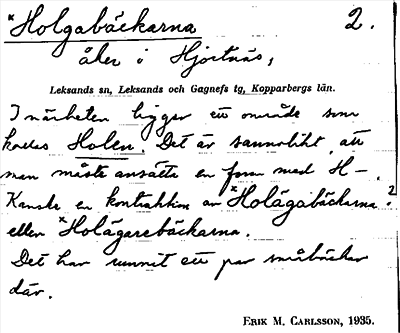 *Holgabäckarna 2.
åker i Hjortnäs,
Leksands sn, Leksands och Gagnefs tg, Kopparbergs län.
I närheten ligger ett område som
kallas Holen. Det är sannolikt att
man måste ansätta en form med H-.
Kanske en kontraktion av *Holågabäckarna?
eller *Holågarebäckarna.
Det har runnit ett par småbäckar
där.
ERIK M. CARLSSON, 1935.